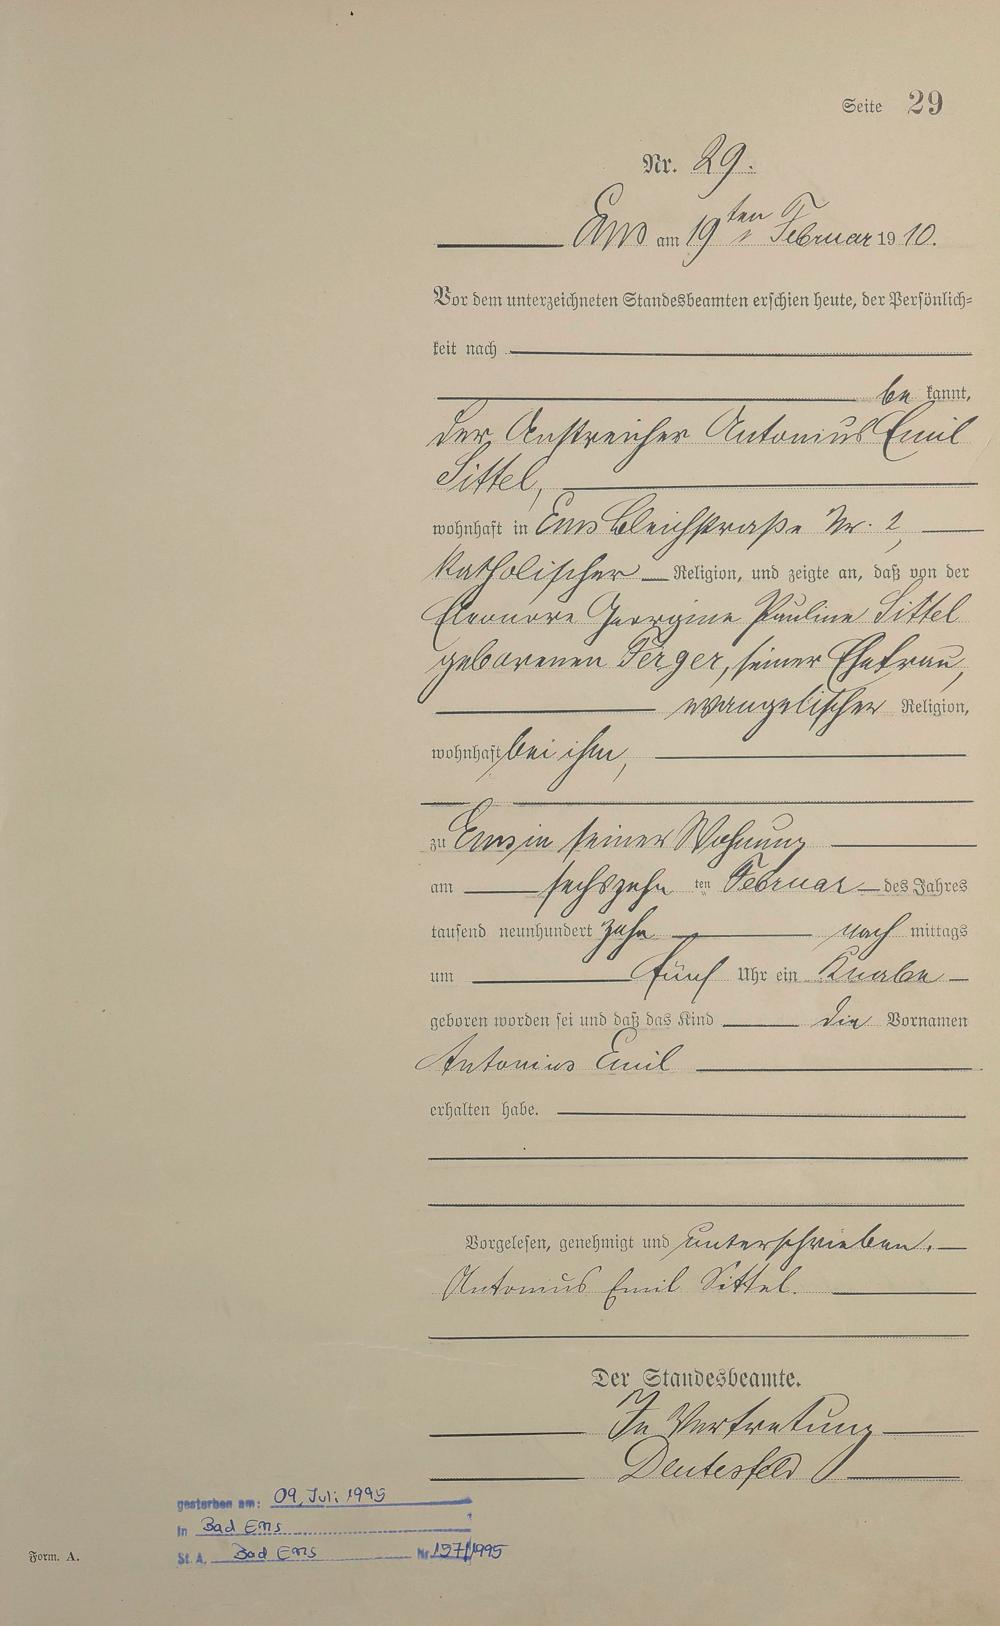 Seite 29
Nr. 29.
Ems am 19ten Februar 1910.
Vor dem unterzeichneten Standesbeamten erschien heute, der Persönlich=
keit nach
be kannt,
der Anstreicher Antonius Emil
Sittel,
wohnhaft in Ems Bleichstraße Nr. 2,
katholischer Religion, und zeigte an, daß von der
Eleonore Georgine Pauline Sittel
geborenen Ferger, seiner Ehefrau,
evangelischer Religion,
wohnhaft bei ihm,
zu Ems in seiner Wohnung
am sechszehn ten Februar des Jahres
tausend neunhundert zehn nach mittags
um fünf Uhr ein Knabe
geboren worden sei und daß das Kind die Vornamen
Antonius Emil
erhalten habe.
Vorgelesen, genehmigt und unterschrieben.
Antonius Emil Sittel.
Der Standesbeamte.
In Vertretung
gestorben am: 09. Juli 1995
in Bad Ems
St. A. Bad Ems Nr. 157/1995
Form. A.